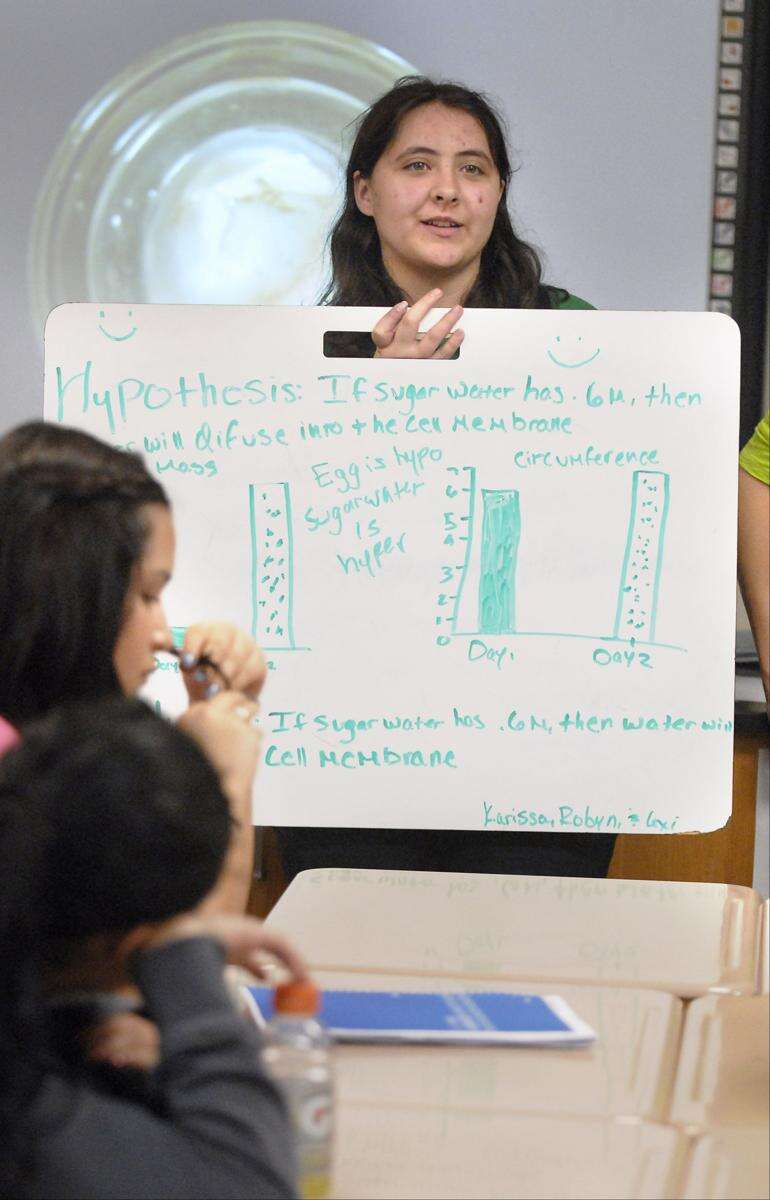 Hypothesis: If sugar water has .6M, then
will difuse into the cell membrane
Mass
Egg is hypo
sugarwater
is
hyper
circumference
7
6
5
4
3
2
1
0
Day 1
Day 2
2
If sugar water has .6M, then water will
cell membrane
Karissa, Robyn, & Lexi